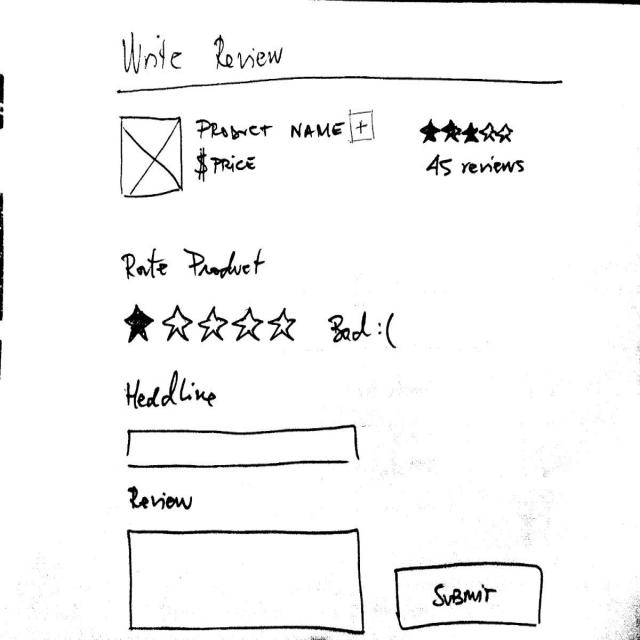 Write Review
PRODUCT NAME +
45 reviews
$ PRICE
Rate Product
Bad :(
Headline
Review
SUBMIT